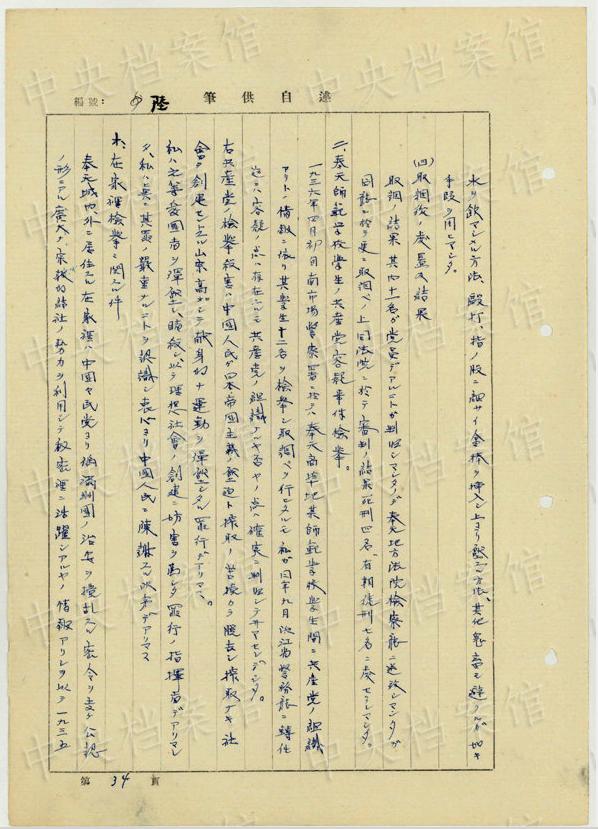 編號: 陸 筆供自述
水ヲ飲マシメル方法、殴打、指ノ股ニ細サイ金棒ヲ挿入シ上ヨリ壓スル方法、其他鬼畜モ避クルガ如キ
手段ヲ用ヒマシタ。
(四)取調後ノ處置及結果
取調ノ結果其内十一名ガ党員デアルコトガ判明シマシタノデ奉天地方法院檢察廳ニ送致シマシタガ
同廳ニ於テ更ニ取調ベノ上同法院ニ於テ審判ノ結果死刑四名、有期徒刑七名ニ處セラレマシタ。
二、奉天師範学校学生ノ共産党容疑事件檢挙。
一九三六年四月初旬南市場警察署ニ於テハ奉天高等地某師範学校学生間ニ共産党ノ組織
アリトノ情報ニ依リ其学生十二名ヲ檢挙シ取調ベヲ行ヒタルモ私ガ同年九月浜江省警務廳ニ轉任
迄ニハ容疑ノ点ハ存在スルモ共産党ノ組織ナルヤ否ヤノ点ハ確実ニ判明シテ居マセンデシタ。
右共産党ノ檢挙殺害ハ中国人民ガ日本帝国主義ノ壓迫ト搾取ノ苦境カラ脱去シ搾取ナキ社
會ヲ創建セントスル崇高ナル献身的ナ運動ヲ弾壓シタル罪行デアリマス。
私ハ之等愛国者ヲ弾壓シ、踏殺シ以テ理想社会ノ創建ヲ妨害シ為シタ罪行ノ指揮者デアリマシ
タ、私ハ其ノ罪悪ノ嚴重ナルコトヲ認識シ衷心ヨリ中国人民ニ陳謝スル次第デアリマス
ホ、在家裡檢挙ニ関スル件
奉天城内、外ニ居住スル在家裡ハ中国国民党ヨリ偽満洲国ノ治安ヲ擾乱スル密令ヲ受ケ公認
ノ形ニアル廣大ノ宗教的結社ノ勢力ヲ利用シテ秘密裡ニ活躍シアルヤノ情報アリシヲ以テ一九三五
第 34 頁
中央档案馆